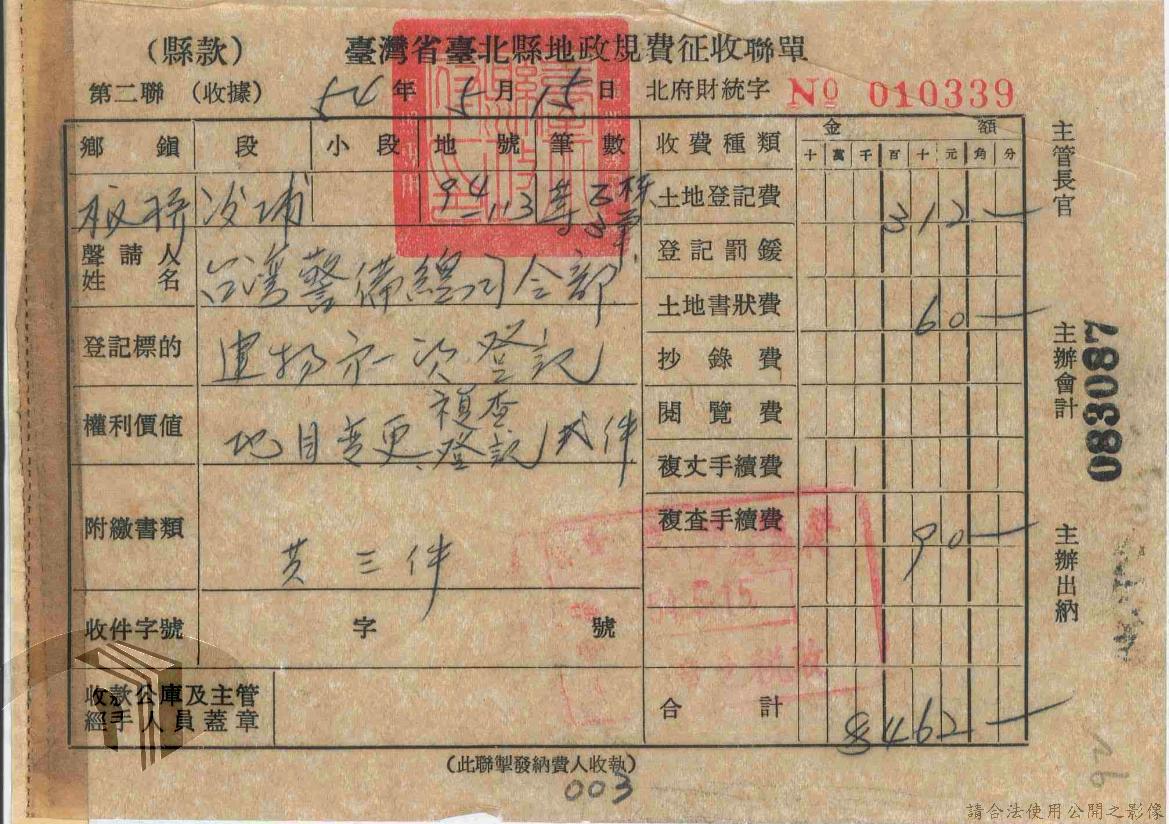 (縣款) 臺灣省臺北縣地政規費征收聯單
第二聯 (收據) 54年5月15日 北府財統字 № 010339
鄉鎮 段 小段 地號 筆數 收費種類 金額
十 萬 千 百 十 元 角 分
板橋 浚埔 94-113 等 3筆 土地登記費 312一
聲請人姓名 台湾警備總司令部 登記罰鍰
土地書狀費 60一
登記標的 建物第一次登記 抄錄費
權利價值 地目變更 複查 登記 弍件 閱覽費
複丈手續費
附繳書類 共三件 複查手續費 90一
收件字號 字 號
54.5.15
收款公庫及主管經手人員蓋章 合計 462一
(此聯掣發納費人收執)
003
主管長官
主辦會計
主辦出納
083087
26
請合法使用公開之影像